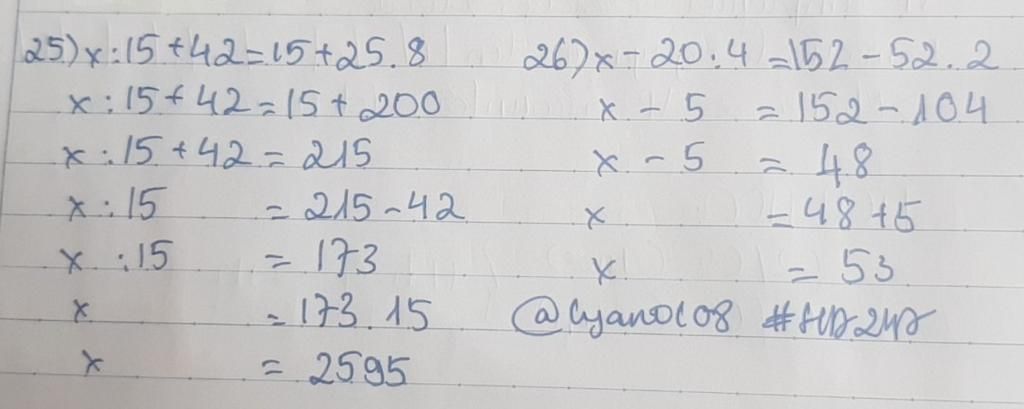 25) x : 15 + 42 = 15 + 25 . 8
x : 15 + 42 = 15 + 200
x : 15 + 42 = 215
x : 15 = 215 - 42
x : 15 = 173
x = 173 . 15
x = 2595
26) x - 20 : 4 = 152 - 52 . 2
x - 5 = 152 - 104
x - 5 = 48
x = 48 + 5
x = 53